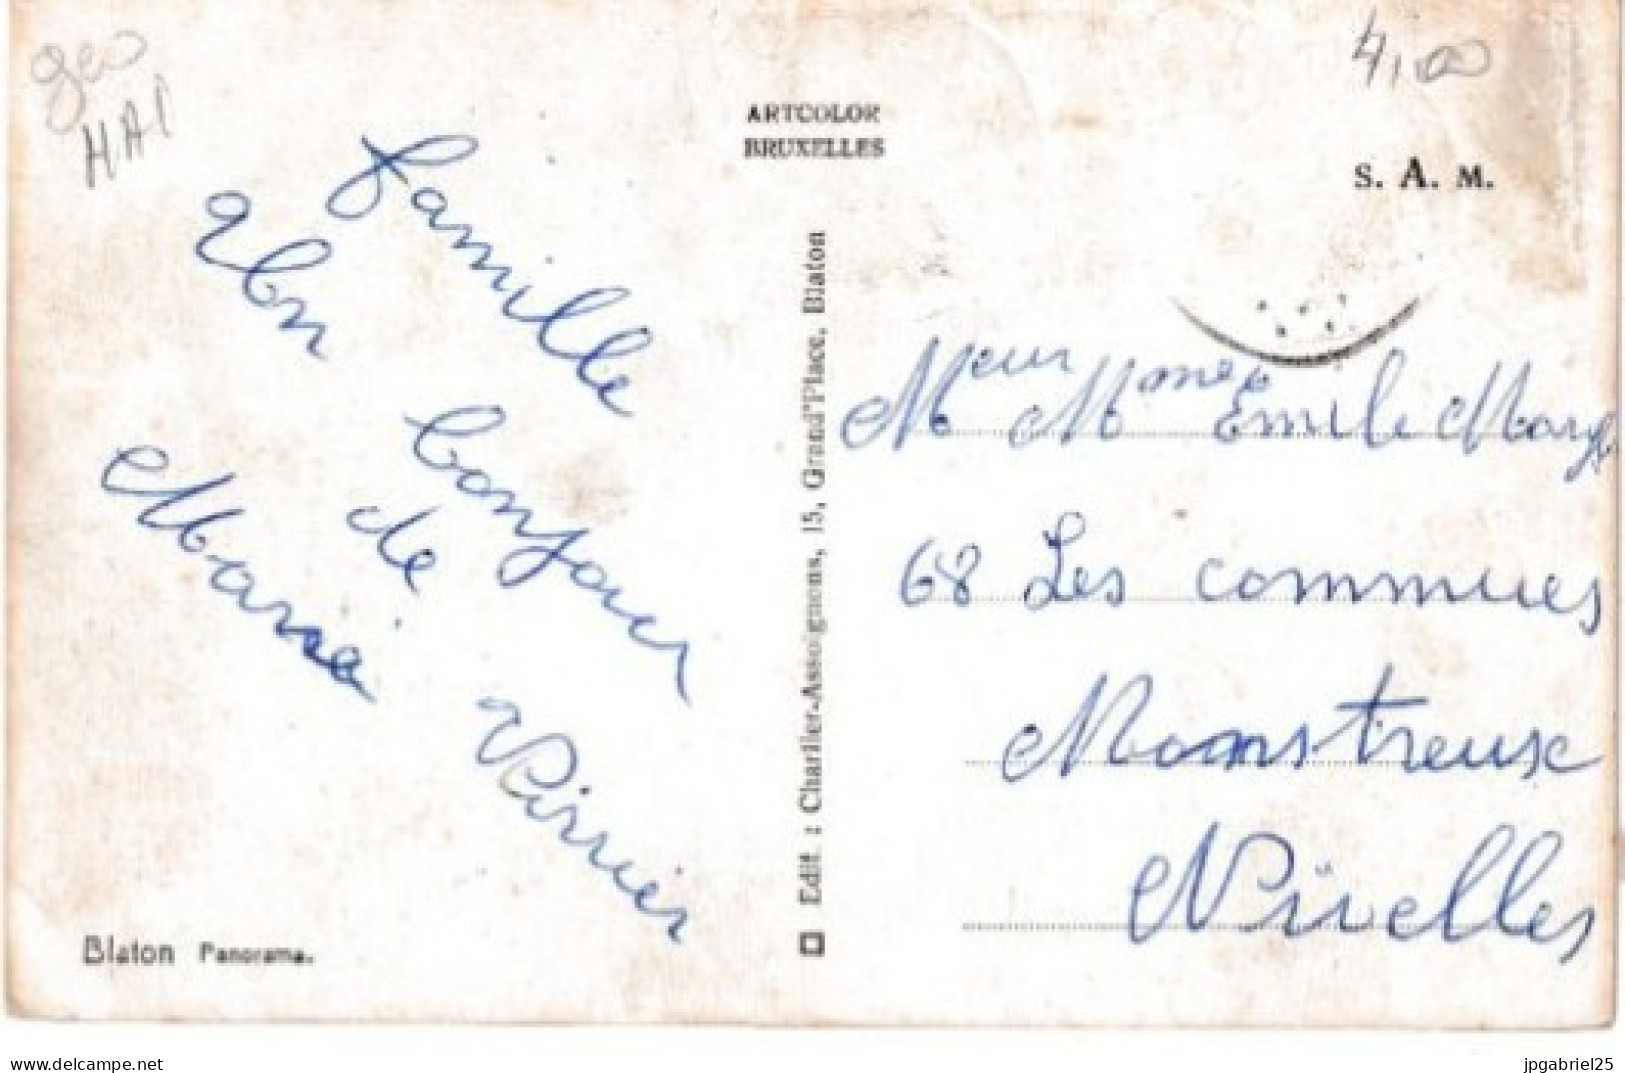 geo
HAI
4,00
ARTCOLOR
BRUXELLES
S. A. M.
famille
Un
bonjour
de
Marie
Edit. : Charlier-Assoignons, 15, Grand'Place, Blaton
Meur Mme Emile
68 Les communes
Monstreux
Nivelles
Blaton Panorama.
delcampe.net
jpgabriel25